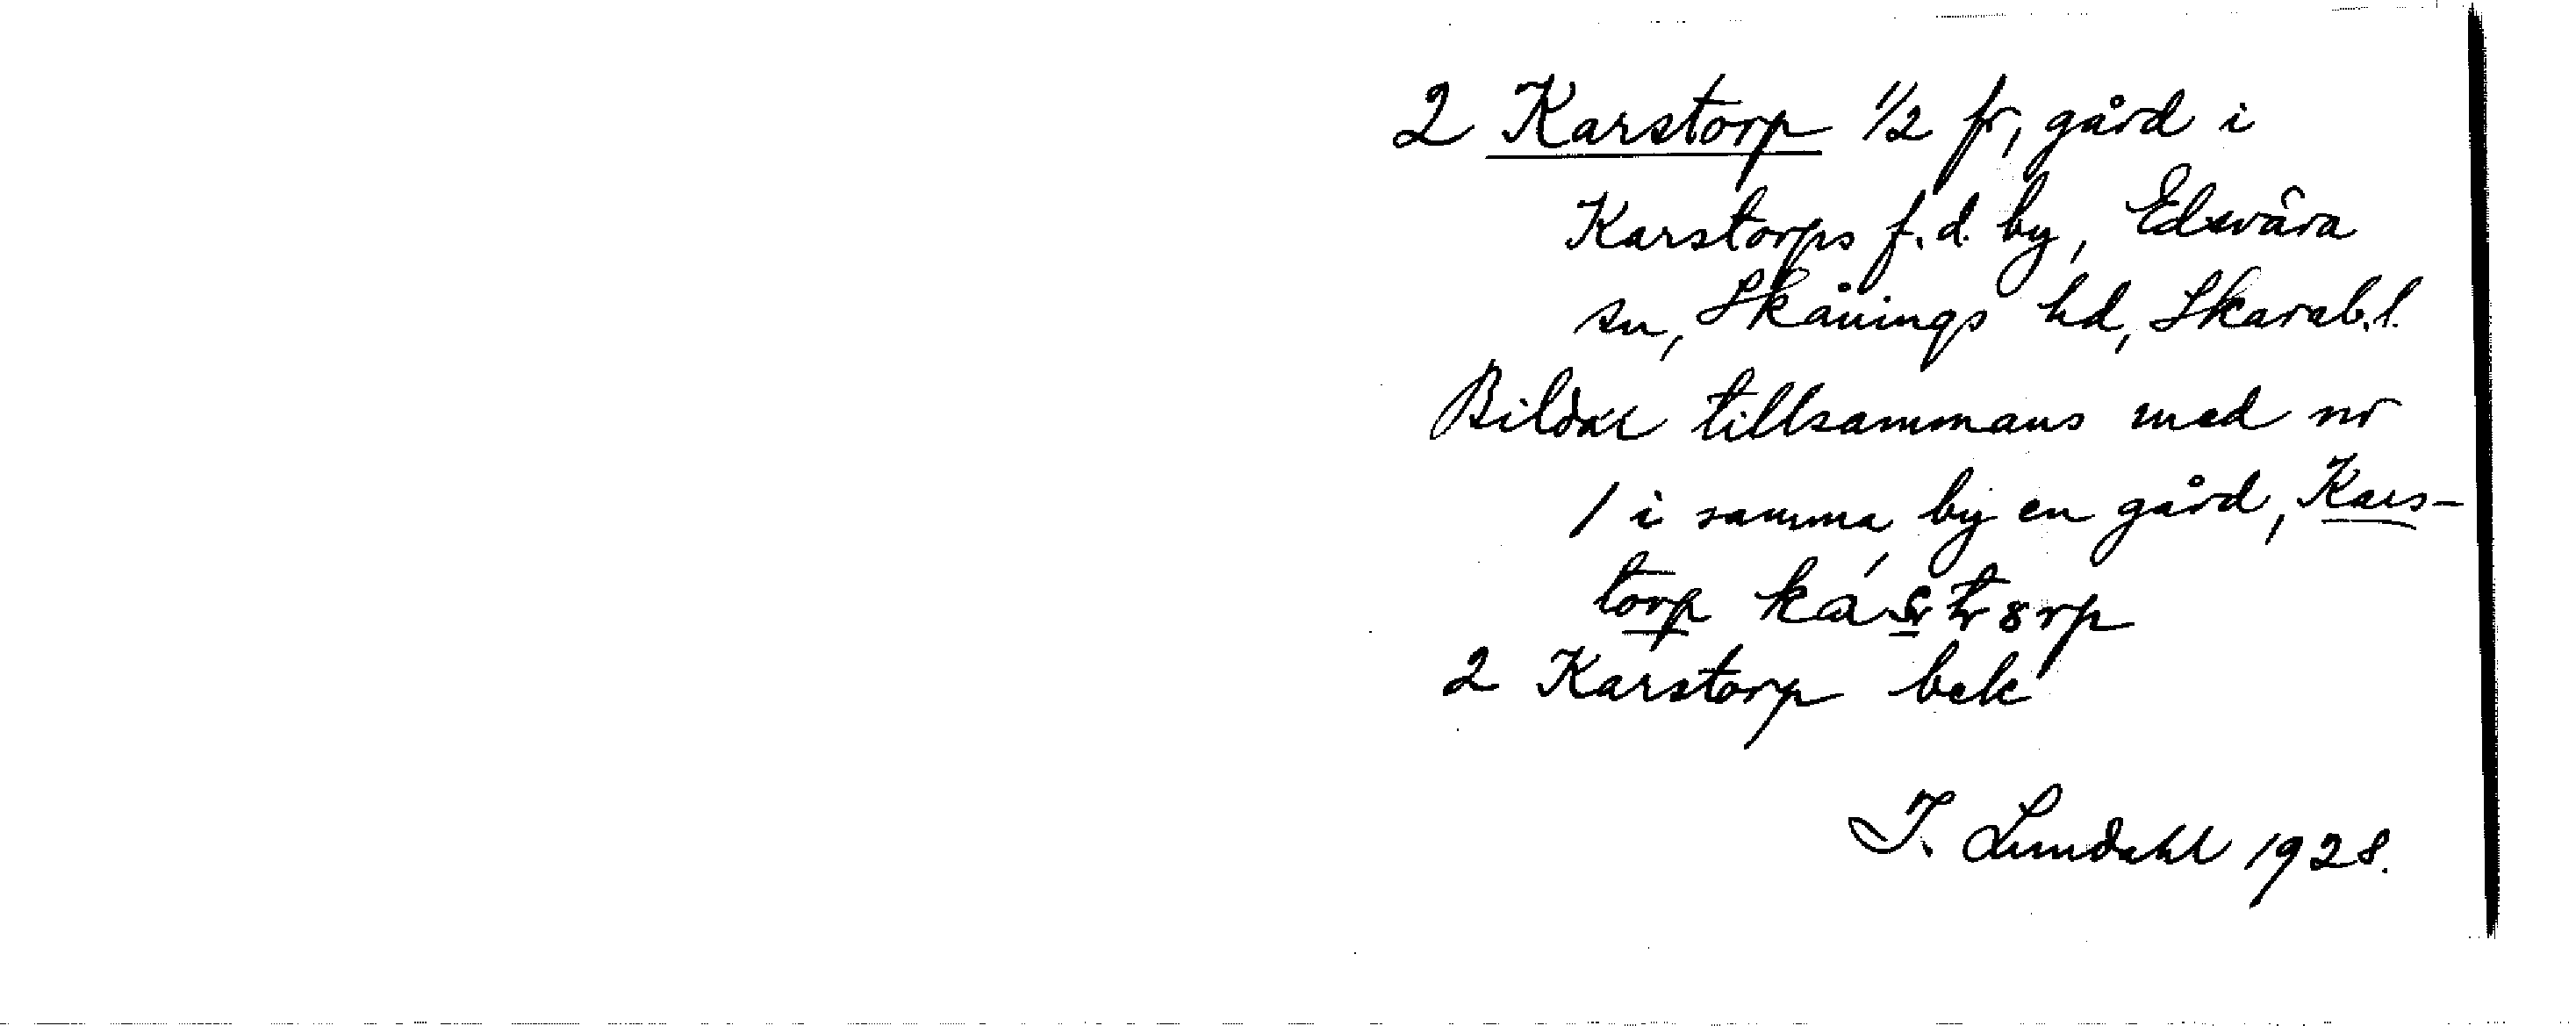 2 Karstorp 1/2 fr, gård i
Karstorps f.d. by, Edsvära
sn, Skånings hd, Skarab.l.
Bildar tillsammans med nr
1 i samma by en gård, Kars-
torp
2 Karstorp bek
I. Lundahl 1928.